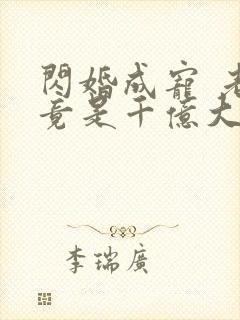 閃婚成寵 老
竟是千億大
李瑞廣